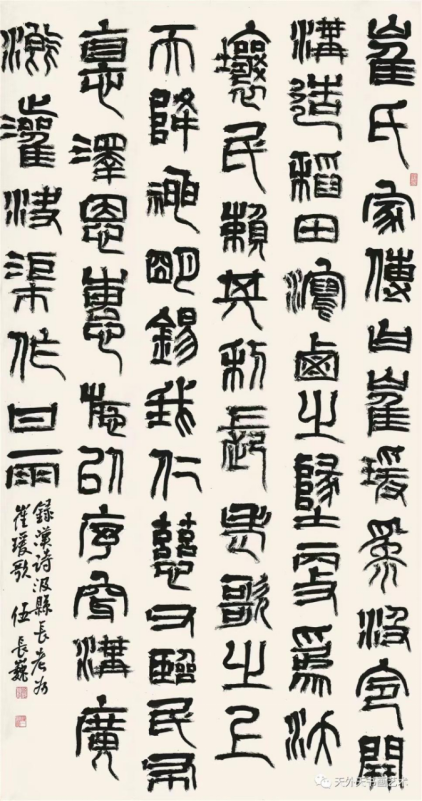 崔氏家傳曰崔瑗為汲令開
溝造稻田瀉鹵之地更為沃
壤民賴其利長老歌之上
天降神明錫我仁慈父臨民布
悳澤恩惠施以序穿溝廣
溉灌決渠作甘雨
錄漢詩汲縣長老為
崔瑗歌 伍長巍
天外天书画艺术